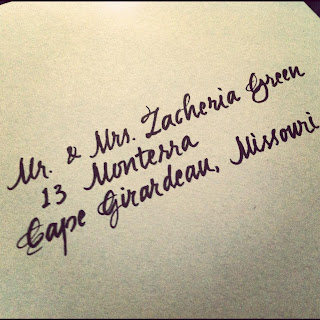 Mr. & Mrs. Zacheria Green
13 Monterra
Cape Girardeau, Missouri